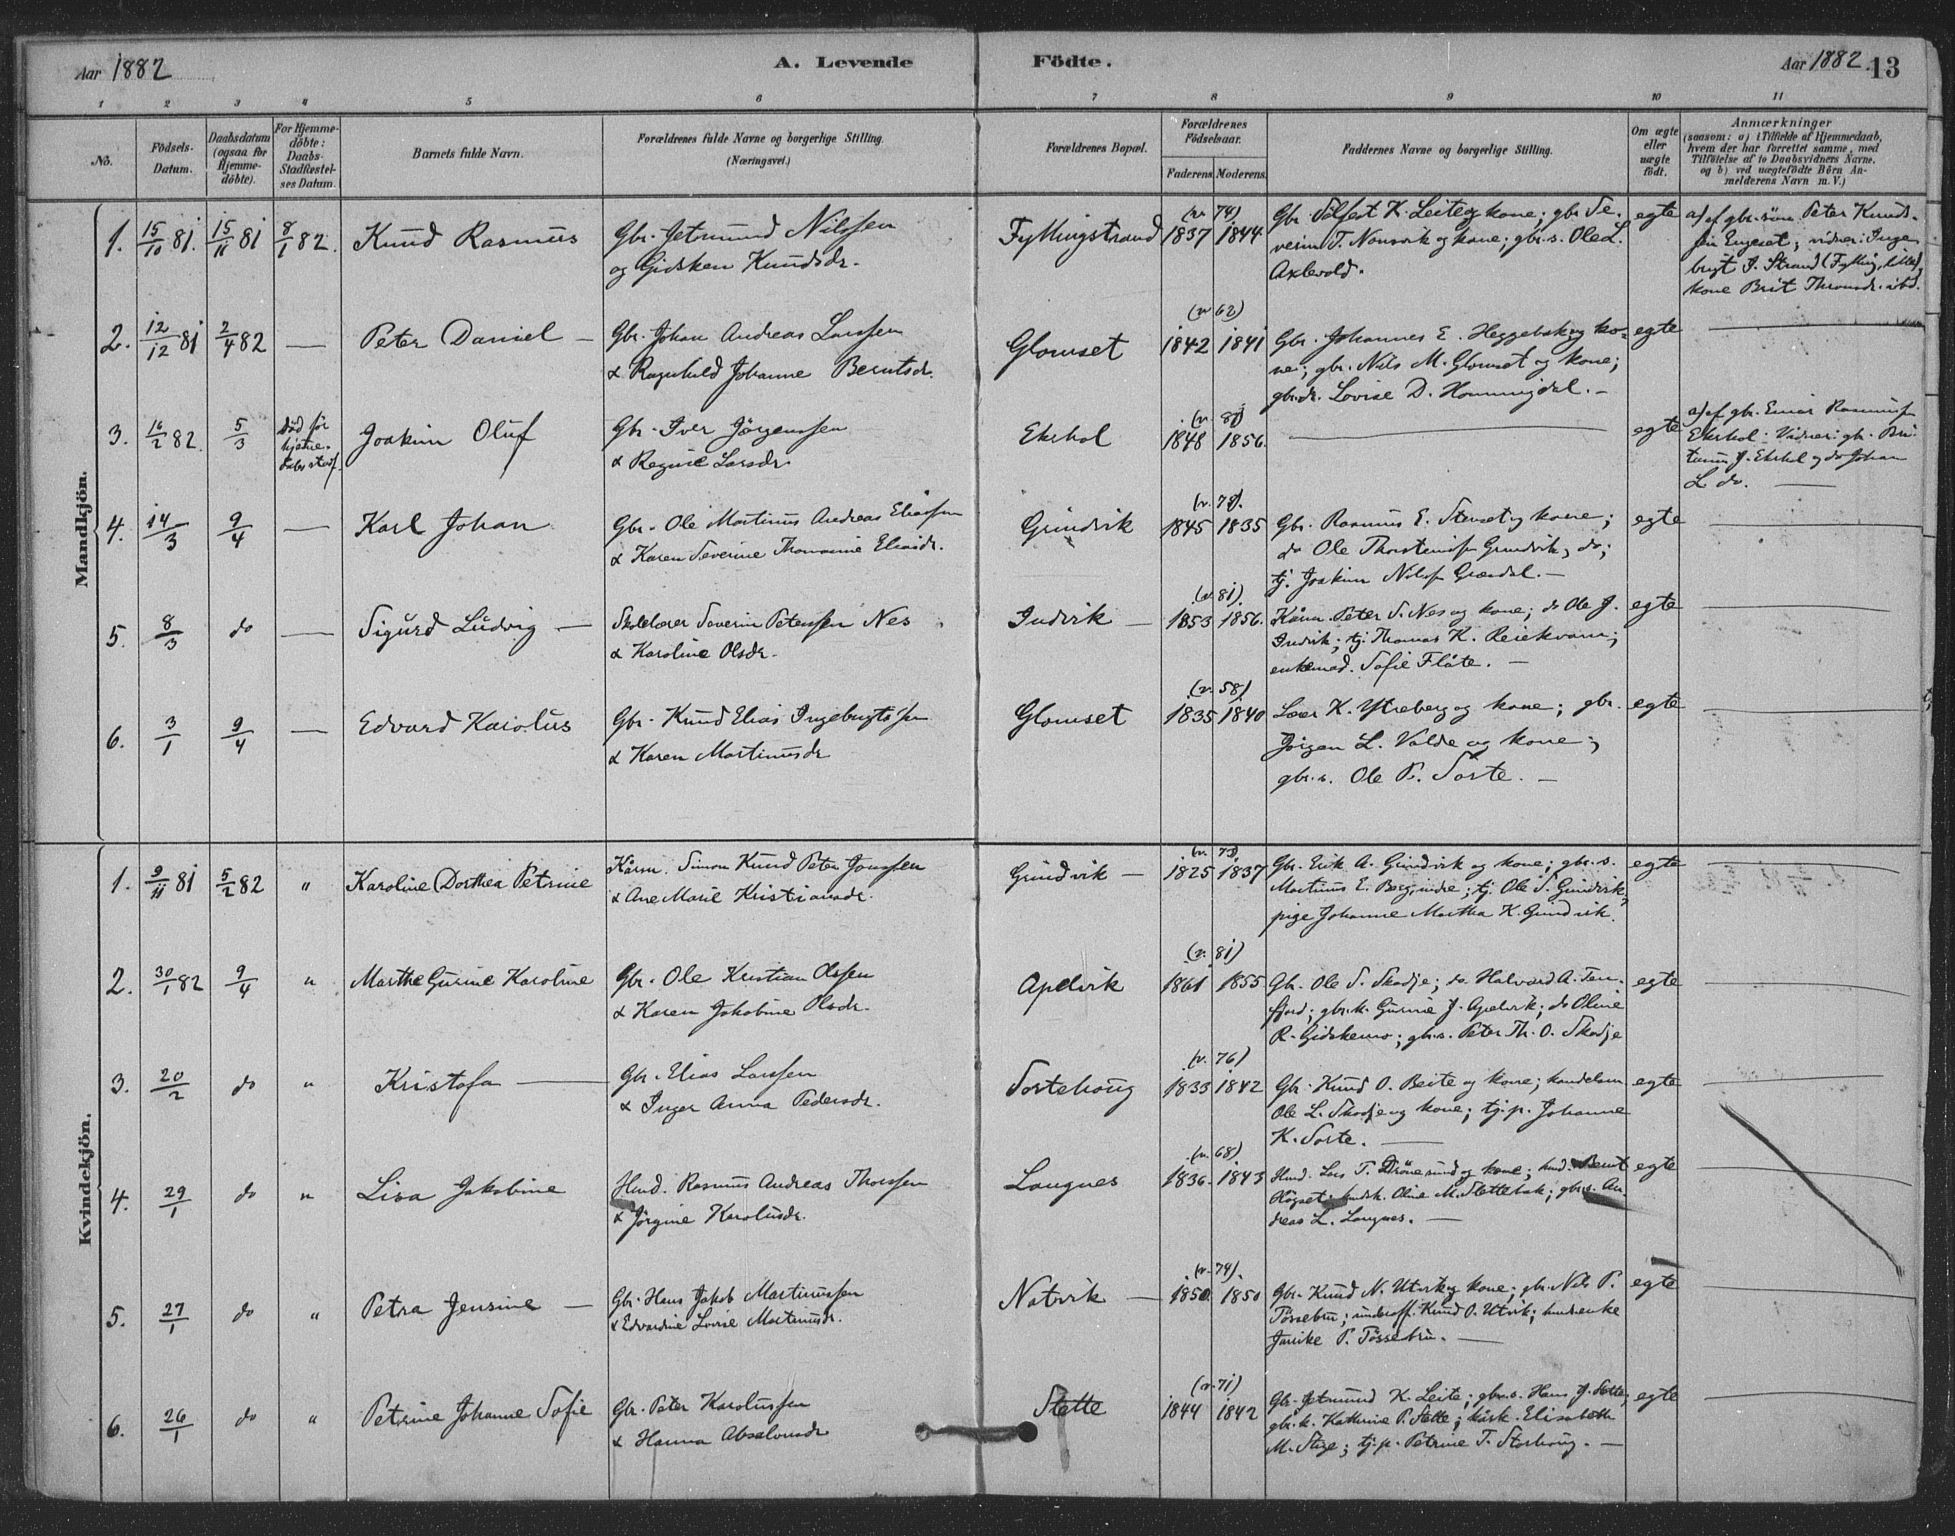 Aar 1882
A. Levende
Födte.
Aar 1882
13
1 2 3 4 5 6 7 8 9 10 11
No.
Födsels-
Datum.
Daabsdatum
(ogsaa for
Hjemme-
døbte).
For Hjemme-
døbte:
Daabs-
Stadfæstel-
ses Datum.
Barnets fulde Navn.
Forældrenes fulde Navne og borgerlige Stilling.
(Næringsvei.)
Forældrenes Bopæl.
Forældrenes
Födselsaar.
Faderens. Moderens.
Faddernes Navne og borgerlige Stilling.
Om ægte
eller
uægte
födt.
Anmærkninger
(saasom: a) i Tilfælde af Hjemmedaab,
hvem der har forrettet samme, med
Tilföielse af to Daabsvidners Navne.
og b) ved uægtefödte Börn An-
melderens Navn m. V.)
Mandkjön.
1. 15/10 81 15/11 81 8/1 82. Knud Rasmus
Gbr. Jetmund Nilssen
og Gidsken Knudsdr.
Fyllingstrand
(v. 74)
1837 1844
Gbr. Sölfest K. Leite og kone; gbr. Se-
verin T. Nonsvik og kone; gbr. s. Ole L.
Axlevold.
egte
a) af gbr. sön Peter Knuds-
sen Engeset; vidner: Inge-
brigt J. Strand (Fylling, lille),
kone Brit Thomasdr. ibd.
2. 12/12 81 2/4 82 — Peter Daniel —
Gbr. Johan Andreas Larssen
& Ragnhild Johanne Berntsdr.
Glomset
(v. 62)
1842 1841
Gbr. Johannes E. Heggebak og ko-
ne; gbr. Nils M. Glomset og kone;
gbr. dr. Lovise D. Hammigdal. —
egte
3. 16/2 82. 5/3 Död før
Joakim Oluf
Gbr. Iver Jörgenssen
& Regine Larsdr.
Ekrhol
(v. 80)
1848 1856.
egte
a) af gbr. Einar Rasmuss.
Ekrhol. Vidner: gbr. Bri-
J. Ekrhol og do Johan
L do. —
4. 14/3 9/4 — Karl Johan
Gbr. Ole Martinus Andreas Eliassen
& Karen Severine Thomasine Eliasdr.
Grindvik
(v. 78).
1845 1835
Gbr. Rasmus E. Stenset og kone;
do Ole Thorsteinss. Grindvik, do;
tj. Joakim Nilss. Grændal. —
egte
5. 8/3 do — Sigurd Ludvig —
Skolelærer Severin Peterssen Nes
& Karoline Olsdr.
Indvik —
(v. 81).
1853 1856.
Kårm. Peter S. Nes og kone; do Ole J.
Indvik; tj. Thomas K. Reiekvam;
enkemad. Sofie Flåte. —
egte
6. 3/1 9/4 — Edvard Karolus
Gbr. Knud Elias Ingebrigtssen
& Karen Martinusdr
Glomset
(v. 58)
1835 1840
Lærer K. Ytreberg og kone; gbr.
Jörgen L. Valde og kone;
gbr. s. Ole P. Sorte. —
egte
Kvindekjön.
1. 9/11 81 5/2 82 " Karoline Dorthea Petrine
Kårm. Simon Knud Peter Jonssen
& Ane Marie Kristiansdr.
Grindvik —
(v. 73)
1825 1837
Gbr. Erik A. Grindvik og kone; gbr. s.
Martinus E. Berg, indre; tj. Ole S. Grindvik,
pige Johanne Martha K. Grindvik.
egte
2. 30/1 82 9/4 " Marthe Gurine Karoline
Gbr. Ole Kristian Olssen
& Karen Jakobine Olsdr.
Apelvik
(v. 81)
1861 1855
Gbr. Ole S. Skodje; do Halvard A. Ten-
fjord; gbr. k. Gurine J. Apelvik; do Oline
R. Gidskemo; gbr. s. Peter Th. O. Skodje
egte
3. 20/2 do " Kristofa —
Gbr. Elias Larssen
& Inger Anna Pedersdr.
Sortehoug
(v. 76)
1833 1842
Gbr. Knud O. Beite og kone; handelsm.
Ole L. Skodje og kone; tj. p. Johanne
K. Sorte. —
egte
4. 29/1 do " Lisa Jakobine
Hmd. Rasmus Andreas Thorssen
& Jørgine Karolusdr.
Langnes
(v. 68)
1836 1843
Hmd. Lars T. Drönesund og kone; hmd. Bernt
Högset; hmdsk. Oline M. Stettebak; gbr. s. An-
dreas L. Langnes. —
egte
5. 27/1 do " Petra Jensine —
Gbr. Hans Jakob Martinussen
& Edvardine Lovise Martinusdr.
Natvik —
(v. 74).
1850 1850
Gbr. Knud N. Utvik og kone; gbr. Nils P.
Tössebro; underoff. Knud O. Utvik; hmdsenke
Janike P. Tössebro. —
egte
6. 26/1 do " Petrine Johanne Sofie
Gbr. Peter Karolussen
& Hanna Absalonsdr
Stette
(v. 71)
1844 1842
Gbr. Jetmund K. Leite; gbr. s. Hans J. Stette;
gbr. k. Kathrine P. Stette; kårk. Elisabeth
M. Stige; tj. p. Petrine T. Storhoug. —
egte